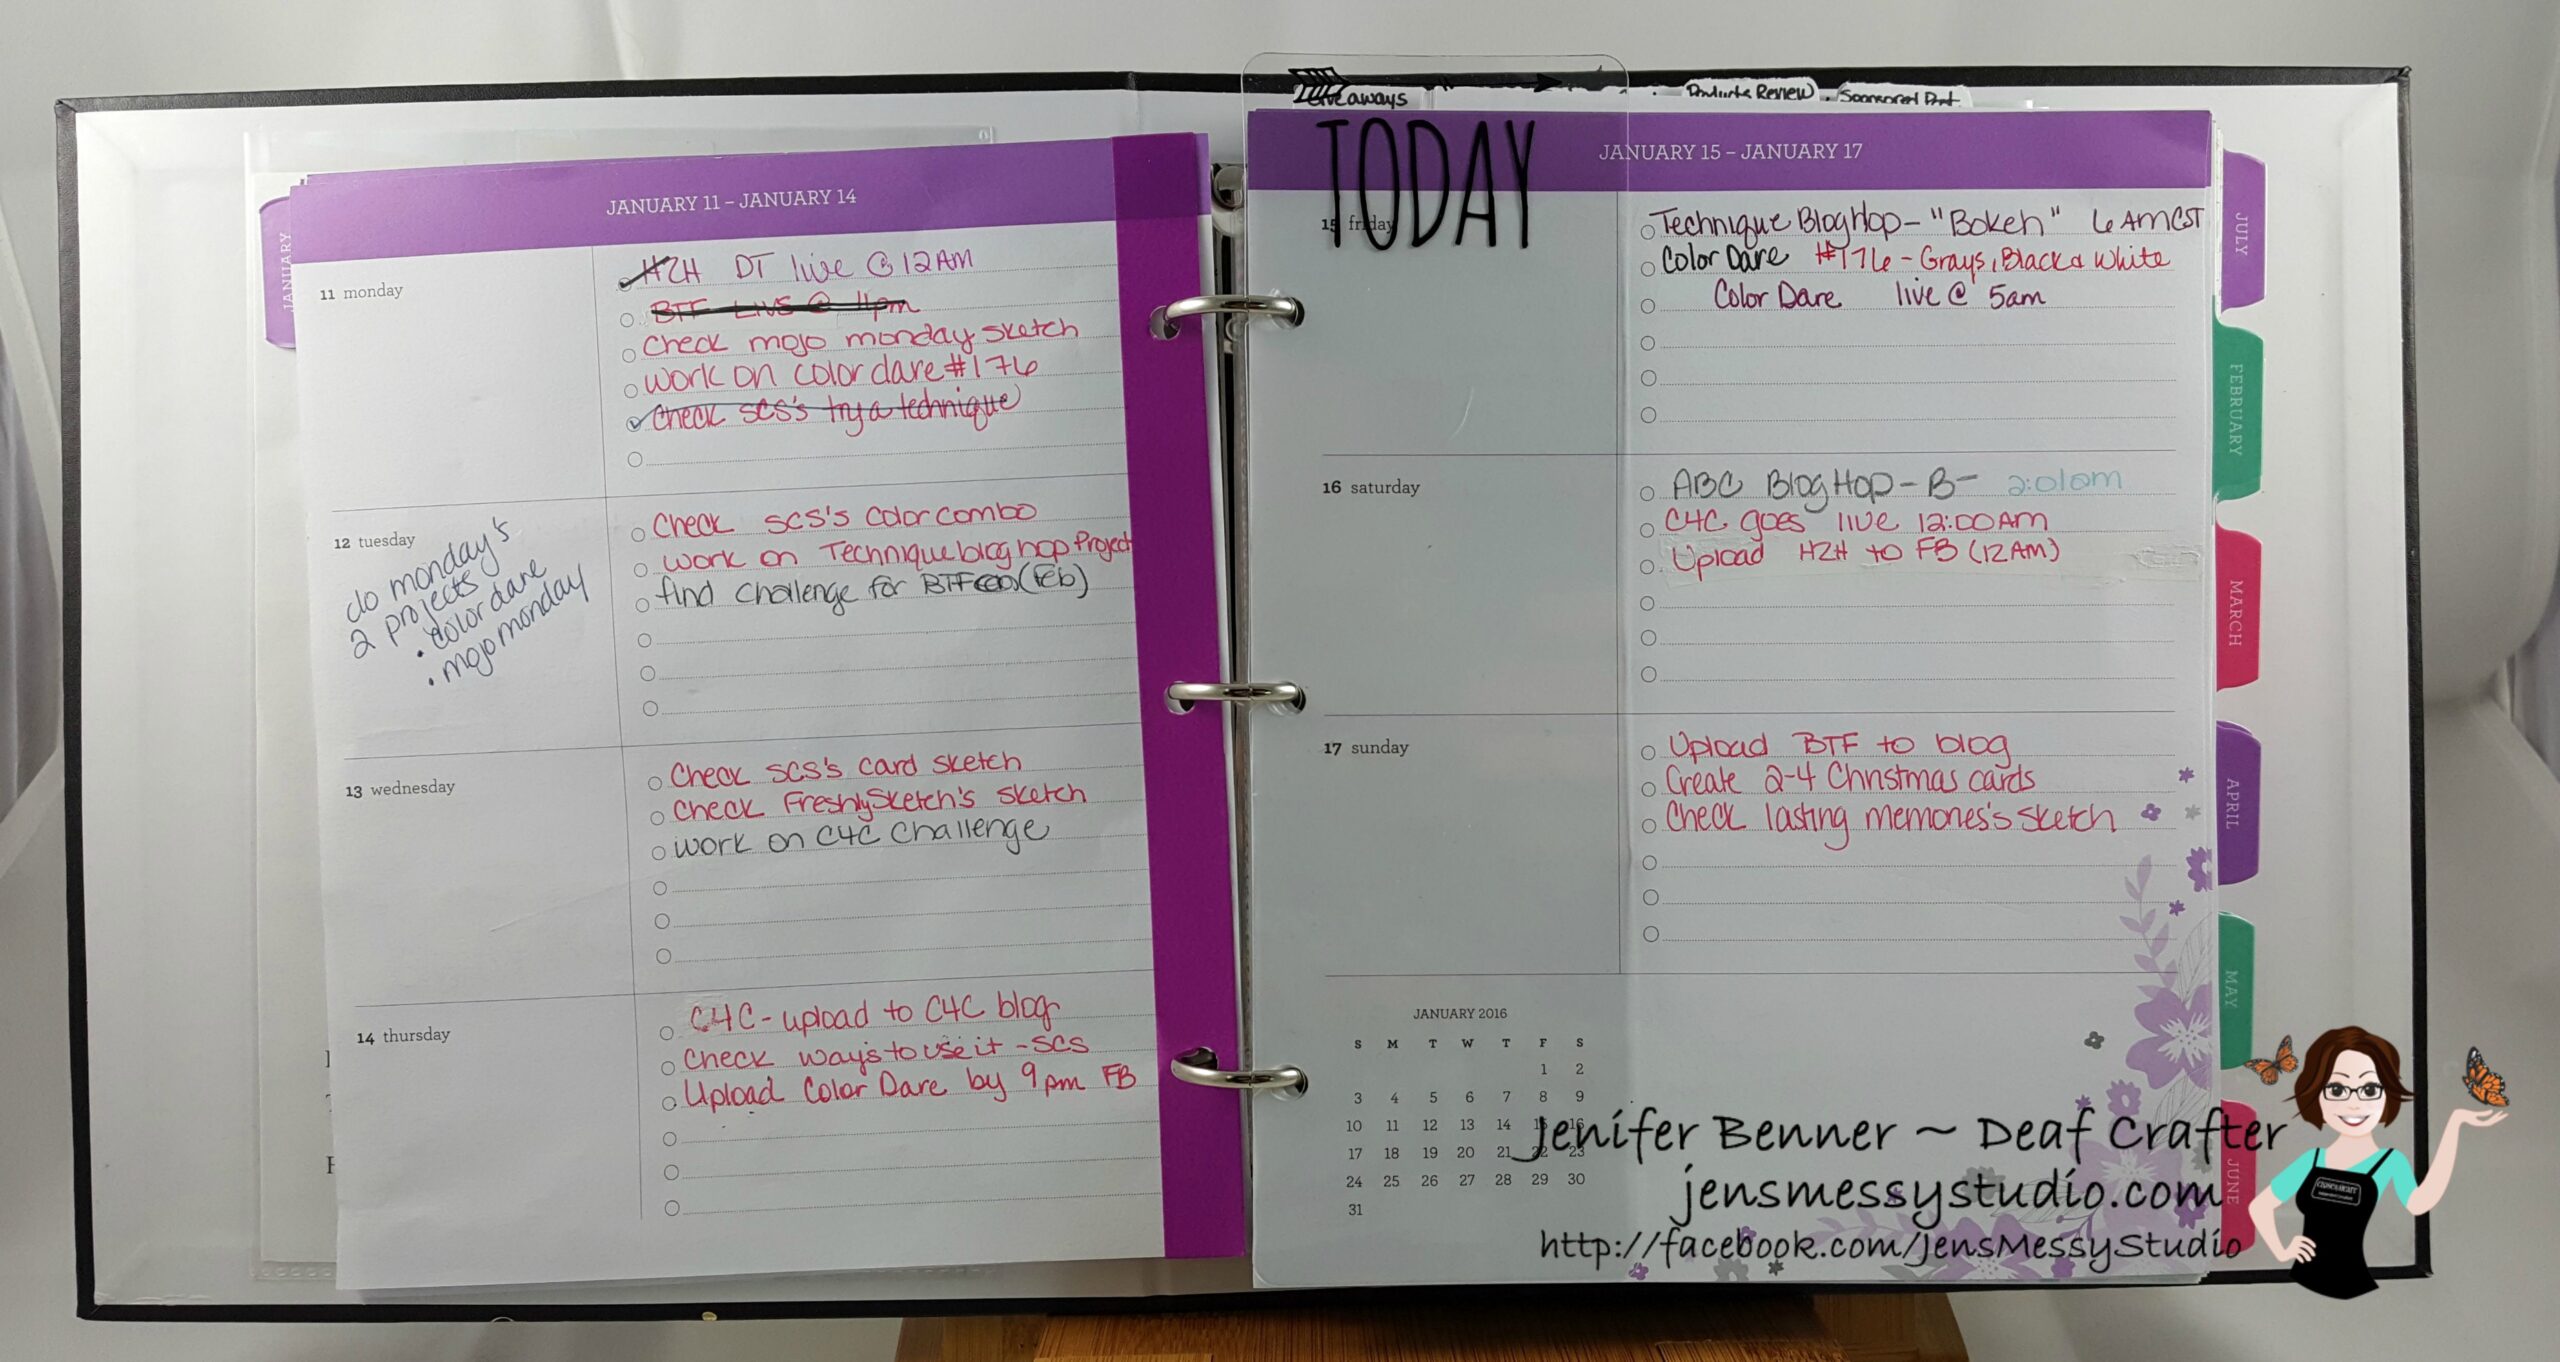 JANUARY
JANUARY 11 – JANUARY 14
11 monday
H2H DT live @ 12AM
BTF LIVE @ 11pm
Check mojo monday sketch
work on color dare #176
Check SCS's try a technique
12 tuesday
do monday's
2 projects
• color dare
• mojo monday
Check SCS's color combo
work on Technique blog hop Project
find challenge for BTF (Feb)
13 wednesday
Check SCS's card sketch
Check FreshlySketch's sketch
work on C4C challenge
14 thursday
C4C - upload to C4C blog
Check ways to use it - SCS
Upload Color Dare by 9pm FB
Giveaways
Products Review
Sponsored
TODAY
JANUARY 15 – JANUARY 17
15 friday
Technique Blog Hop - "Bokeh" 6 AM CST
Color Dare #176 - Grays, Black & White
Color Dare live @ 5am
16 saturday
ABC Blog Hop - B - 2:01am
C4C goes live 12:00AM
Upload H2H to FB (12AM)
17 sunday
Upload BTF to blog
Create 2-4 Christmas cards
Check lasting memories's sketch
JANUARY 2016
S M T W T F S
1 2
3 4 5 6 7 8 9
10 11 12 13 14 15 16
17 18 19 20 21 22 23
24 25 26 27 28 29 30
31
JULY
FEBRUARY
MARCH
APRIL
MAY
JUNE
Jenifer Benner ~ Deaf Crafter
jensmessystudio.com
http://facebook.com/JensMessyStudio